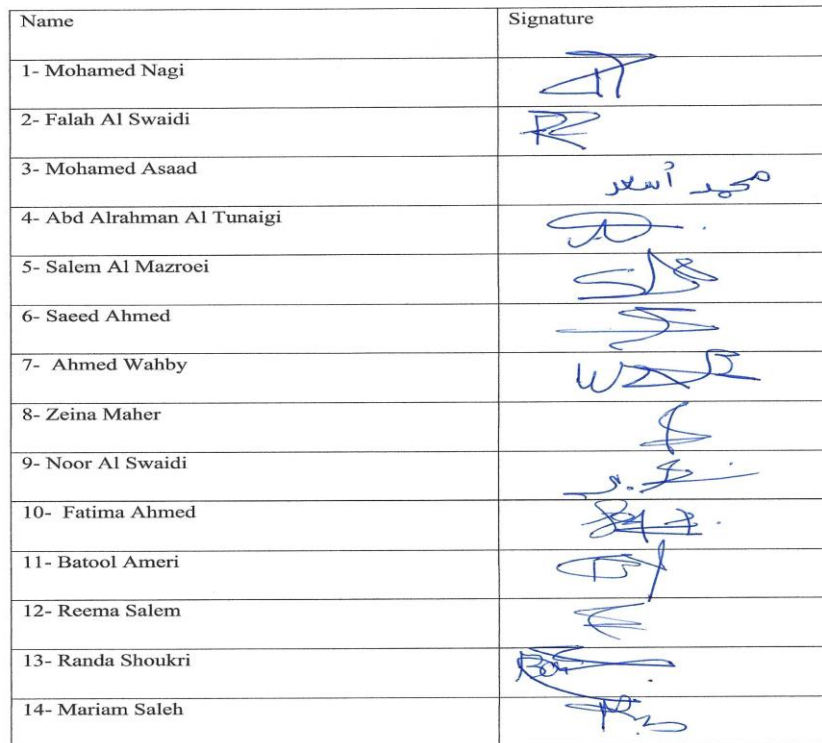 Name Signature
1- Mohamed Nagi
2- Falah Al Swaidi
3- Mohamed Asaad محمد أسعد
4- Abd Alrahman Al Tunaigi
5- Salem Al Mazroei
6- Saeed Ahmed
7- Ahmed Wahby
8- Zeina Maher
9- Noor Al Swaidi
10- Fatima Ahmed
11- Batool Ameri
12- Reema Salem
13- Randa Shoukri
14- Mariam Saleh